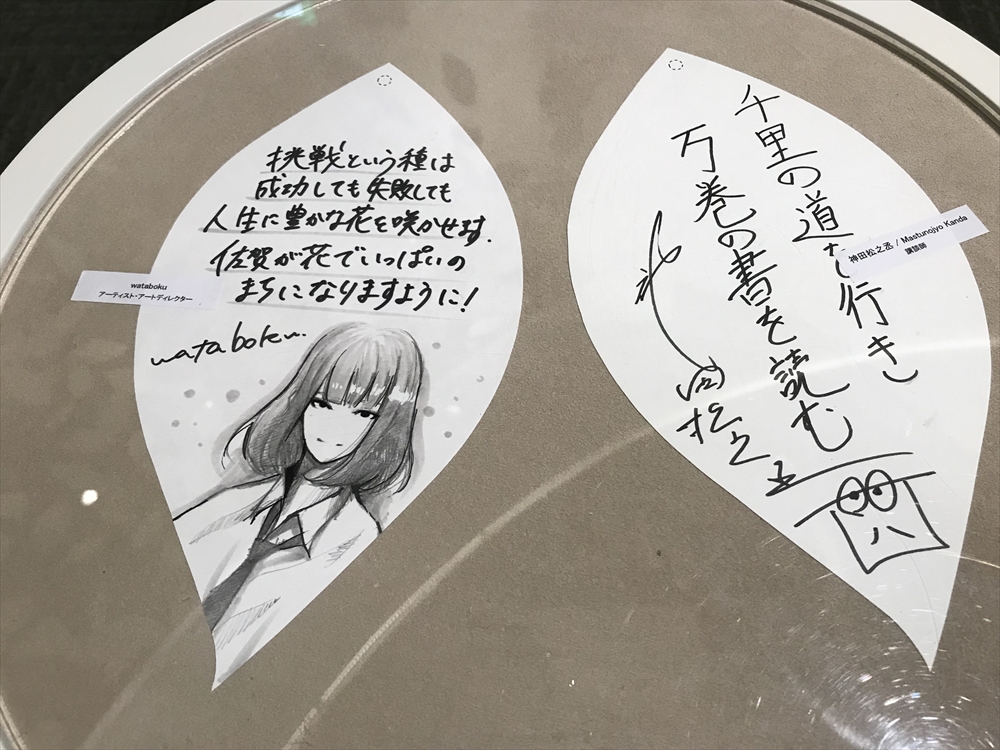 挑戦という種は
成功しても失敗しても
人生に豊かな花を咲かせます.
佐賀が花でいっぱいの
まちになりますように!
wataboku.
wataboku
アーティスト・アートディレクター
千里の道を行き
万巻の書を読む
神田松之丞
神田松之丞 / Mastunojyo Kanda
講談師